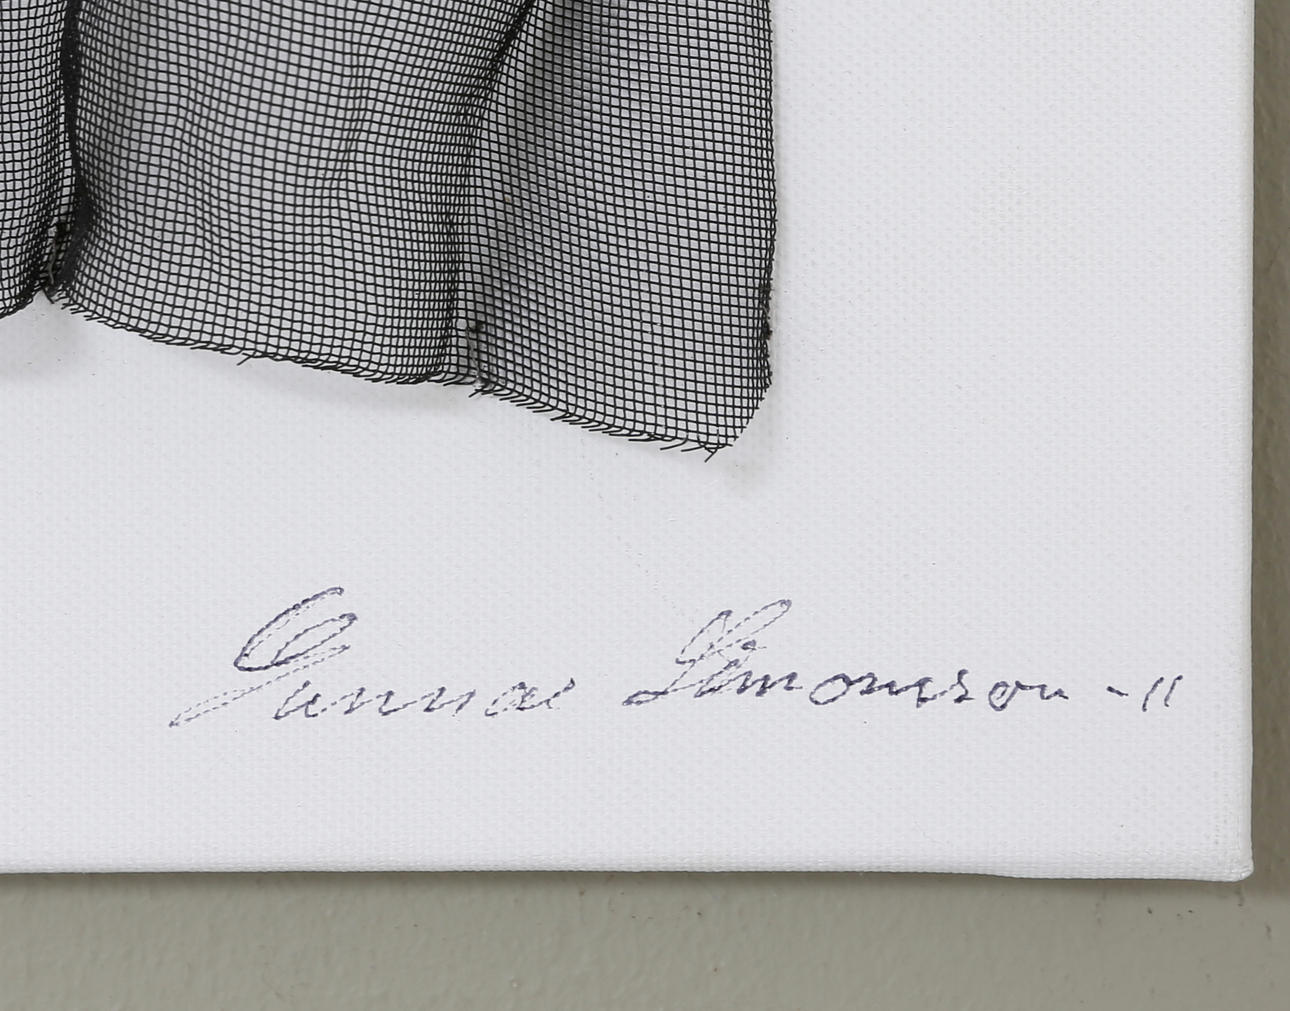 Gunnar Simonsson -11